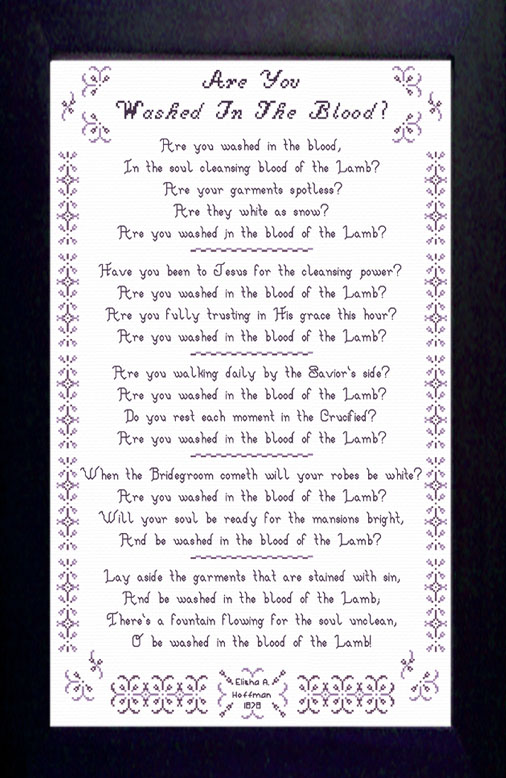 Are You
Washed In The Blood?
Are you washed in the blood,
In the soul cleansing blood of the Lamb?
Are your garments spotless?
Are they white as snow?
Are you washed in the blood of the Lamb?
Have you been to Jesus for the cleansing power?
Are you washed in the blood of the Lamb?
Are you fully trusting in His grace this hour?
Are you washed in the blood of the Lamb?
Are you walking daily by the Savior's side?
Are you washed in the blood of the Lamb?
Do you rest each moment in the Crucified?
Are you washed in the blood of the Lamb?
When the Bridegroom cometh will your robes be white?
Are you washed in the blood of the Lamb?
Will your soul be ready for the mansions bright,
And be washed in the blood of the Lamb?
Lay aside the garments that are stained with sin,
And be washed in the blood of the Lamb;
There's a fountain flowing for the soul unclean,
O be washed in the blood of the Lamb!
Elisha A.
Hoffman
1878